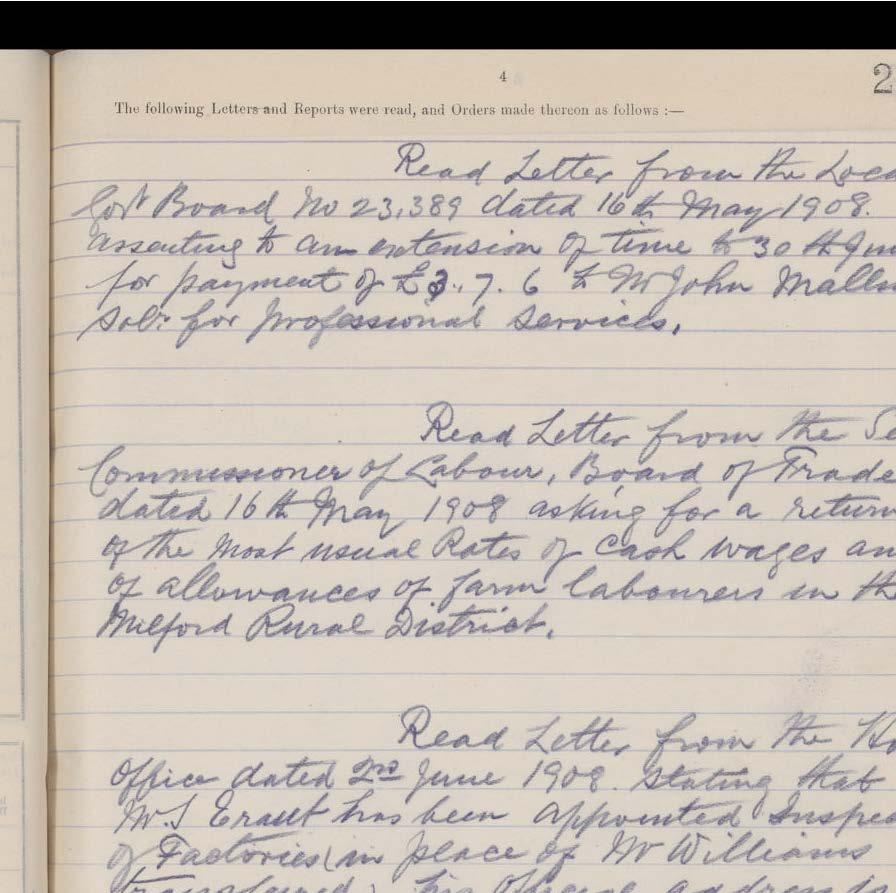 4
2
The following Letters and Reports were read, and Orders made thereon as follows :—
Read Letter from the Loca
Govt Board No 23,389 dated 16th May 1908.
assenting to an extension of time to 30th Jun
for payment of £3. 7. 6 to Mr John
Solr. for professional services.
Read Letter from the Se
Commissioner of Labour, Board of Trade
dated 16th May 1908 asking for a return
of the most usual Rates of Cash wages an
of allowances of farm labourers in th
Milford Rural District.
Read Letter from the Ho
Office dated 2nd June 1908. stating that
W.S Eraut has been appointed Inspec
of Factories in place of Mr Williams
transferred; his official address is